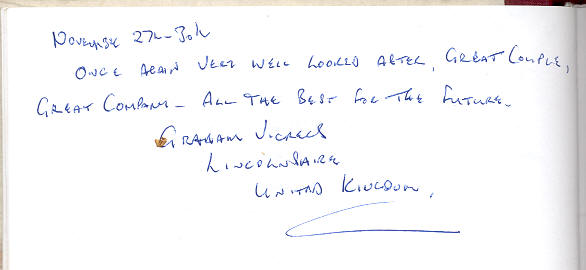 November 27th-30th
Once again very well looked after, Great Couple,
Great Company - All the Best for the Future.
Graham
Lincolnshire
United Kingdom.